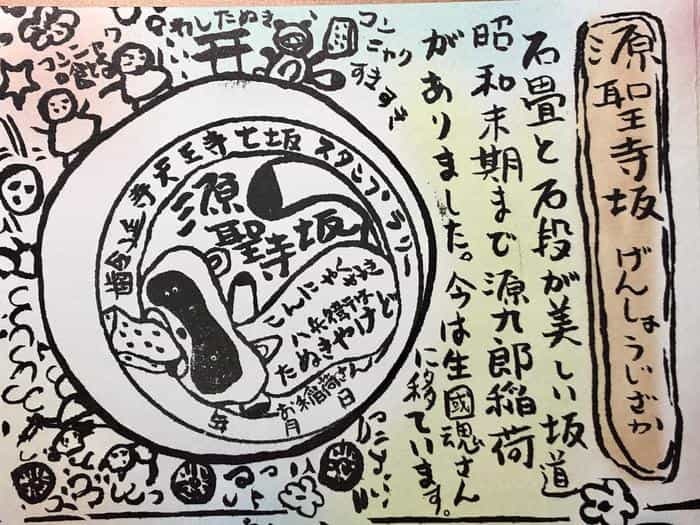 源聖寺坂 げんしょうじざか
石畳と石段が美しい坂道
昭和末期まで源九郎稲荷
がありました。今は生國魂さん
に移ています。
わしたぬき
コンニャク
すきすき
天王寺七坂スタンプラリー
源
聖寺坂
こんにゃく好き
八兵衛は
たぬきやけど
お稲荷さん
年 月 日